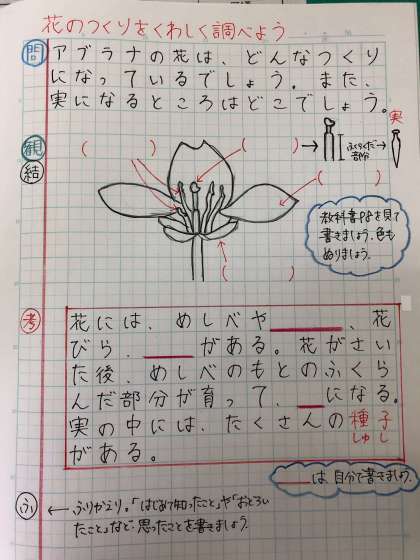 花のつくりをくわしく調べよう
問 アブラナの花は、どんなつくり
になっているでしょう。また、
実になるところはどこでしょう。
観
結
(　　　)
(　　　)
ふくらんだ
部分
実
(　　　)
(　　　)
教科書P8を見て
書きましょう。色も
ぬりましょう。
考 花には、めしべや＿＿＿＿、花
びら、＿＿＿がある。花がさい
た後、めしべのもとのふくら
んだ部分が育って、＿＿になる。
実の中には、たくさんの種子
しゅし
がある。
＿＿＿は、自分で書きましょう。
ふ ← ふりかえり。「はじめて知ったこと」や「おどろい
たこと」など、思ったことを書きましょう。